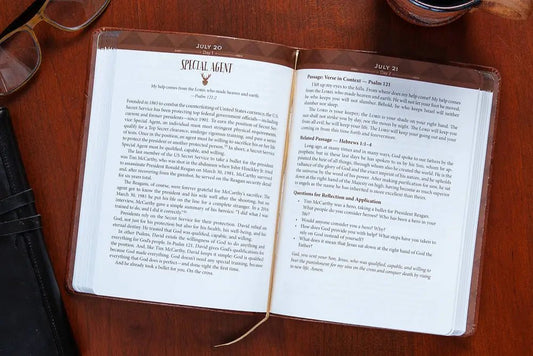 JULY 20
Day 1
SPECIAL AGENT
My help comes from the LORD, who made heaven and earth.
—Psalm 121:2
Founded in 1865 to combat the counterfeiting of United States currency, the US
Secret Service has been protecting top federal government officials—including
current and former presidents—since 1901. To earn the position of Secret Ser-
vice Special Agent, an individual must meet stringent physical requirements,
qualify for a Top Secret clearance, undergo rigorous training, and pass a series
of tests. Once in the position, an agent must be willing to sacrifice his or her life
to protect the president or another protected person.
Special Agent must be qualified, capable, and willing.
The last member of the US Secret Service to take a bullet for the president
was Tim McCarthy, who was shot in the abdomen when John Hinckley Jr. tried
to assassinate President Ronald Reagan on March 30, 1981. McCarthy survived
and, after recovering from the gunshot, he served on the Reagan security detail
for six years total.
The Reagans, of course, were forever grateful for McCarthy's sacrifice. The
agent got to know the president and his wife well after the shooting, but on
March 30, 1981 he put his life on the line for a complete stranger. In a 2016
interview, McCarthy gave a simple summary of his heroics: "I did what I was
trained to do, and I did it correctly."
Presidents rely on the Secret Service for their protection. David relied on
God, not just for his protection but also for his health, his well-being, and his
eternal destiny. He trusted that God was qualified, capable, and willing.
In other Psalms, David extols the willingness of God to do anything and
everything for God's people. In Psalm 121, David gives God's qualifications for
the position. And, like Tim McCarthy, David keeps it simple: God is qualified
because God made everything. God doesn't need any special training, because
everything that God does is perfect—and done right the first time.
And he already took a bullet for you. On the cross.
JULY 21
Day 2
Passage: Verse in Context — Psalm 121
I lift up my eyes to the hills. From where does my help come? My help comes
from the LORD, who made heaven and earth. He will not let your foot be moved;
he who keeps you will not slumber. Behold, he who keeps Israel will neither
slumber nor sleep.
The LORD is your keeper; the LORD is your shade on your right hand. The
sun shall not strike you by day, nor the moon by night. The LORD will keep you
from all evil; he will keep your life. The LORD will keep your going out and your
coming in from this time forth and forevermore.
Related Passage — Hebrews 1:1–4
Long ago, at many times and in many ways, God spoke to our fathers by the
prophets, but in these last days he has spoken to us by his Son, whom he ap-
pointed the heir of all things, through whom also he created the world. He is the
radiance of the glory of God and the exact imprint of his nature, and he upholds
the universe by the word of his power. After making purification for sins, he sat
down at the right hand of the Majesty on high, having become as much superior
to angels as the name he has inherited is more excellent than theirs.
Questions for Reflection and Application
• Tim McCarthy was a hero, taking a bullet for President Reagan.
What people do you consider heroes? Who has been a hero in your
life?
• Would anyone consider you a hero? Why?
• How does God provide you with help? What steps have you taken to
rely on God instead of yourself?
• What does it mean that Jesus sat down at the right hand of God the
Father?
God, you sent your Son, Jesus, who was qualified, capable, and willing to
bear the punishment for my sins on the cross and conquer death by rising
to new life. Amen.